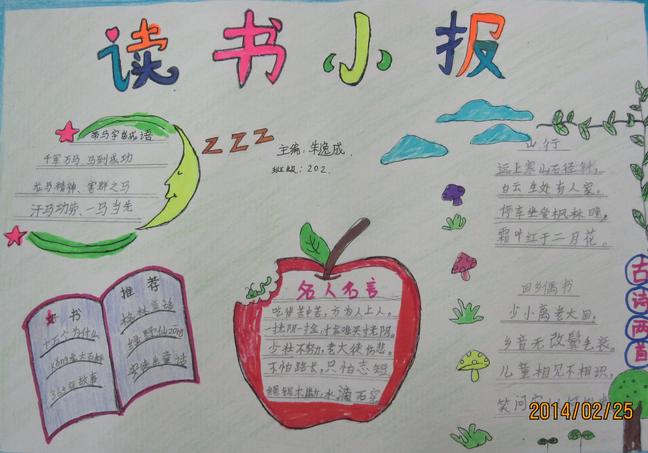 读书小报
带马字的成语
千军万马、马到成功
龙马精神、害群之马
汗马功劳、一马当先
ZZZ
主编:朱逸成.
班级:202.
山行
远上寒山石径斜,
白云生处有人家。
停车坐爱枫林晚,
霜叶红于二月花。
回乡偶书
少小离老大回,
乡音无改鬓毛衰。
儿童相见不相识,
笑问客
古诗两首
名人名言
吃得苦中苦,方为人上人。
一寸光阴一寸金,寸金难买寸光阴。
少壮不努力,老大徒伤悲。
不怕路长,只怕志短
绳锯木断,水滴石穿
好书
推荐
十万个为什么
格林童话
绿野仙踪
安徒生童话
365夜故事
2014/02/25